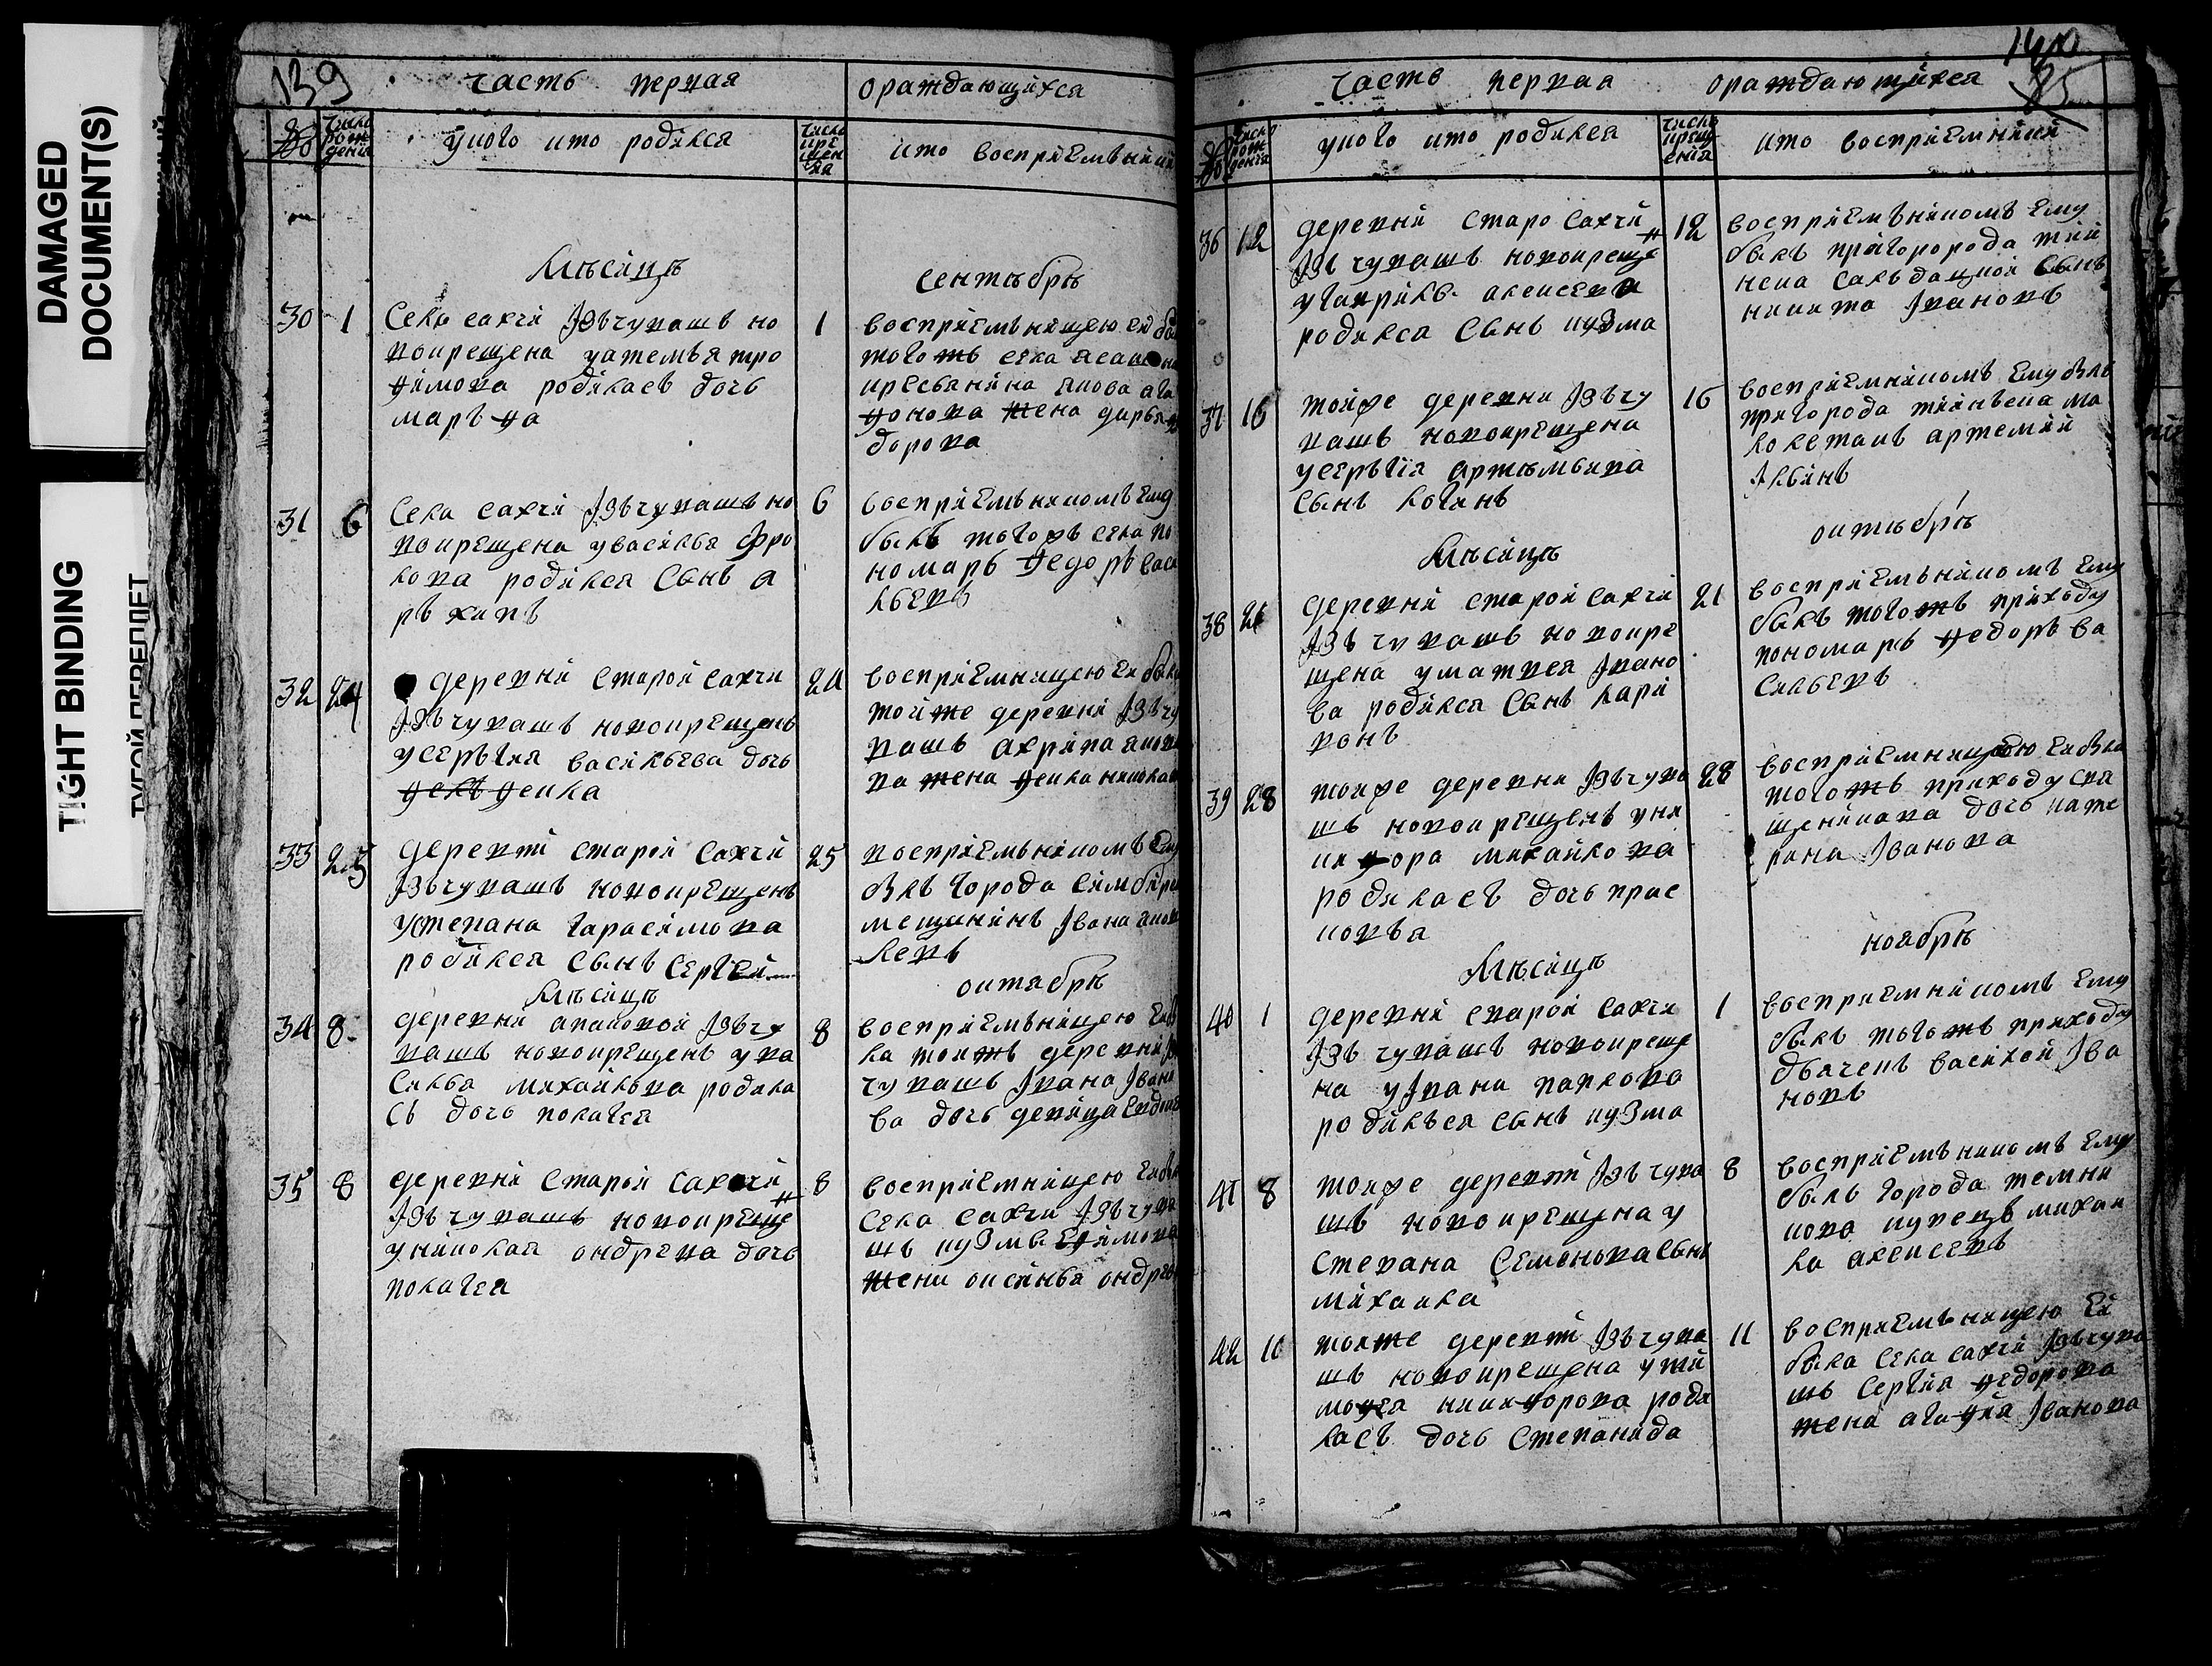 DAMAGED
DOCUMENT(S)
TIGHT BINDING
ТУГОЙ ПЕРЕПЛЕТ
139
часть первая
ораждающихся
число рождения
укого кто родился
число крещения
кто восприемники
мѣсяцъ
сентябрь
30 1
Села сахчи Ізъ чувашъ но
вокрещена
родилась дочь
марѳа
1
восприемницею ей
тогожъ села
жена дарья
31 6
Села сахчи Ізъ чувашъ но
вокрещена у василья фро
лова родился сынъ а
рхипъ
6
восприемникомъ ему
былъ тогожъ села по
номарь ѳедоръ васи
льевъ
32 24
деревни старой сахчи
Ізъ чувашъ новокрещенъ
у сергѣя васильева дочь
ѳекла
24
восприемницею ей была
тойже деревни Ізъ чу
вашъ
жена ѳекла
33 25
деревни старой сахчи
Ізъ чувашъ новокрещенъ
у степана гарасимова
родился сынъ сергей
25
восприемникомъ ему
былъ города симбирска
мещанинъ Івана
мѣсяцъ
октябрь
34 8
деревни Ізъ чу
вашъ новокрещенъ у ва
силья михайлова родила
сь дочь полагея
8
восприемницею ей бы
ла тойжъ деревни Ізъ
чувашъ Івана Івано
ва дочь девица
35 8
деревни старой сахчи
Ізъ чувашъ новокреще
у николая ондрева дочь
полагея
8
восприемницею ей была
Села сахчи Ізъ чува
шъ кузмы ефимова
жена оксинья ондрев
140
85
часть первая
ораждающихся
число рождения
укого кто родился
число крещения
кто восприемники
36 12
деревни старо сахчи
Ізъ чувашъ новокреще
у гаврилы алексеева
родился сынъ кузма
12
восприемникомъ ему
былъ пригоророда тии
нска салъдацкой сынъ
никита Івановъ
37 16
тойже деревни Ізъ чу
вашъ новокрещена
у сергѣя артемьива
сынъ логинъ
16
восприемникомъ ему былъ
пригорода тиинъска ма
лолетакъ артемий
Ільинъ
мѣсяцъ
октябрь
38 21
деревни старой сахчи
Ізъ чувашъ новокре
щена у матвея Івано
ва родился сынъ лари
вонъ
21
восприемникомъ ему
былъ тогожъ приходу
пономарь ѳедоръ ва
сильевъ
39 28
тойже деревни Ізъ чува
шъ новокрещенъ у ни
киѳора михайлова
родилась дочь прас
ковья
28
восприемницею ей была
тогожъ приходу свя
щеникова дочь кате
рина Іванова
мѣсяцъ
ноябрь
40 1
деревни старой сахчи
Ізъ чувашъ новокреще
на у Івана павлова
родилъся сынъ кузма
1
восприемникомъ ему
былъ тогожъ приходу
дьячекъ василей Іва
новъ
41 8
тойже деревни Ізъ чува
шъ новокрещена у
степана семенова сынъ
михаила
8
восприемникомъ ему
былъ города темни
кова купецъ михаи
ла алексеевъ
42 10
тойже деревни Ізъ чува
шъ новокрещена у ти
моѳея никиѳорова роди
лась дочь степанида
11
восприемницею ей
была села сахчи Ізъ чува
шъ сергѣя ѳедорова
жена агаѳия Іванова